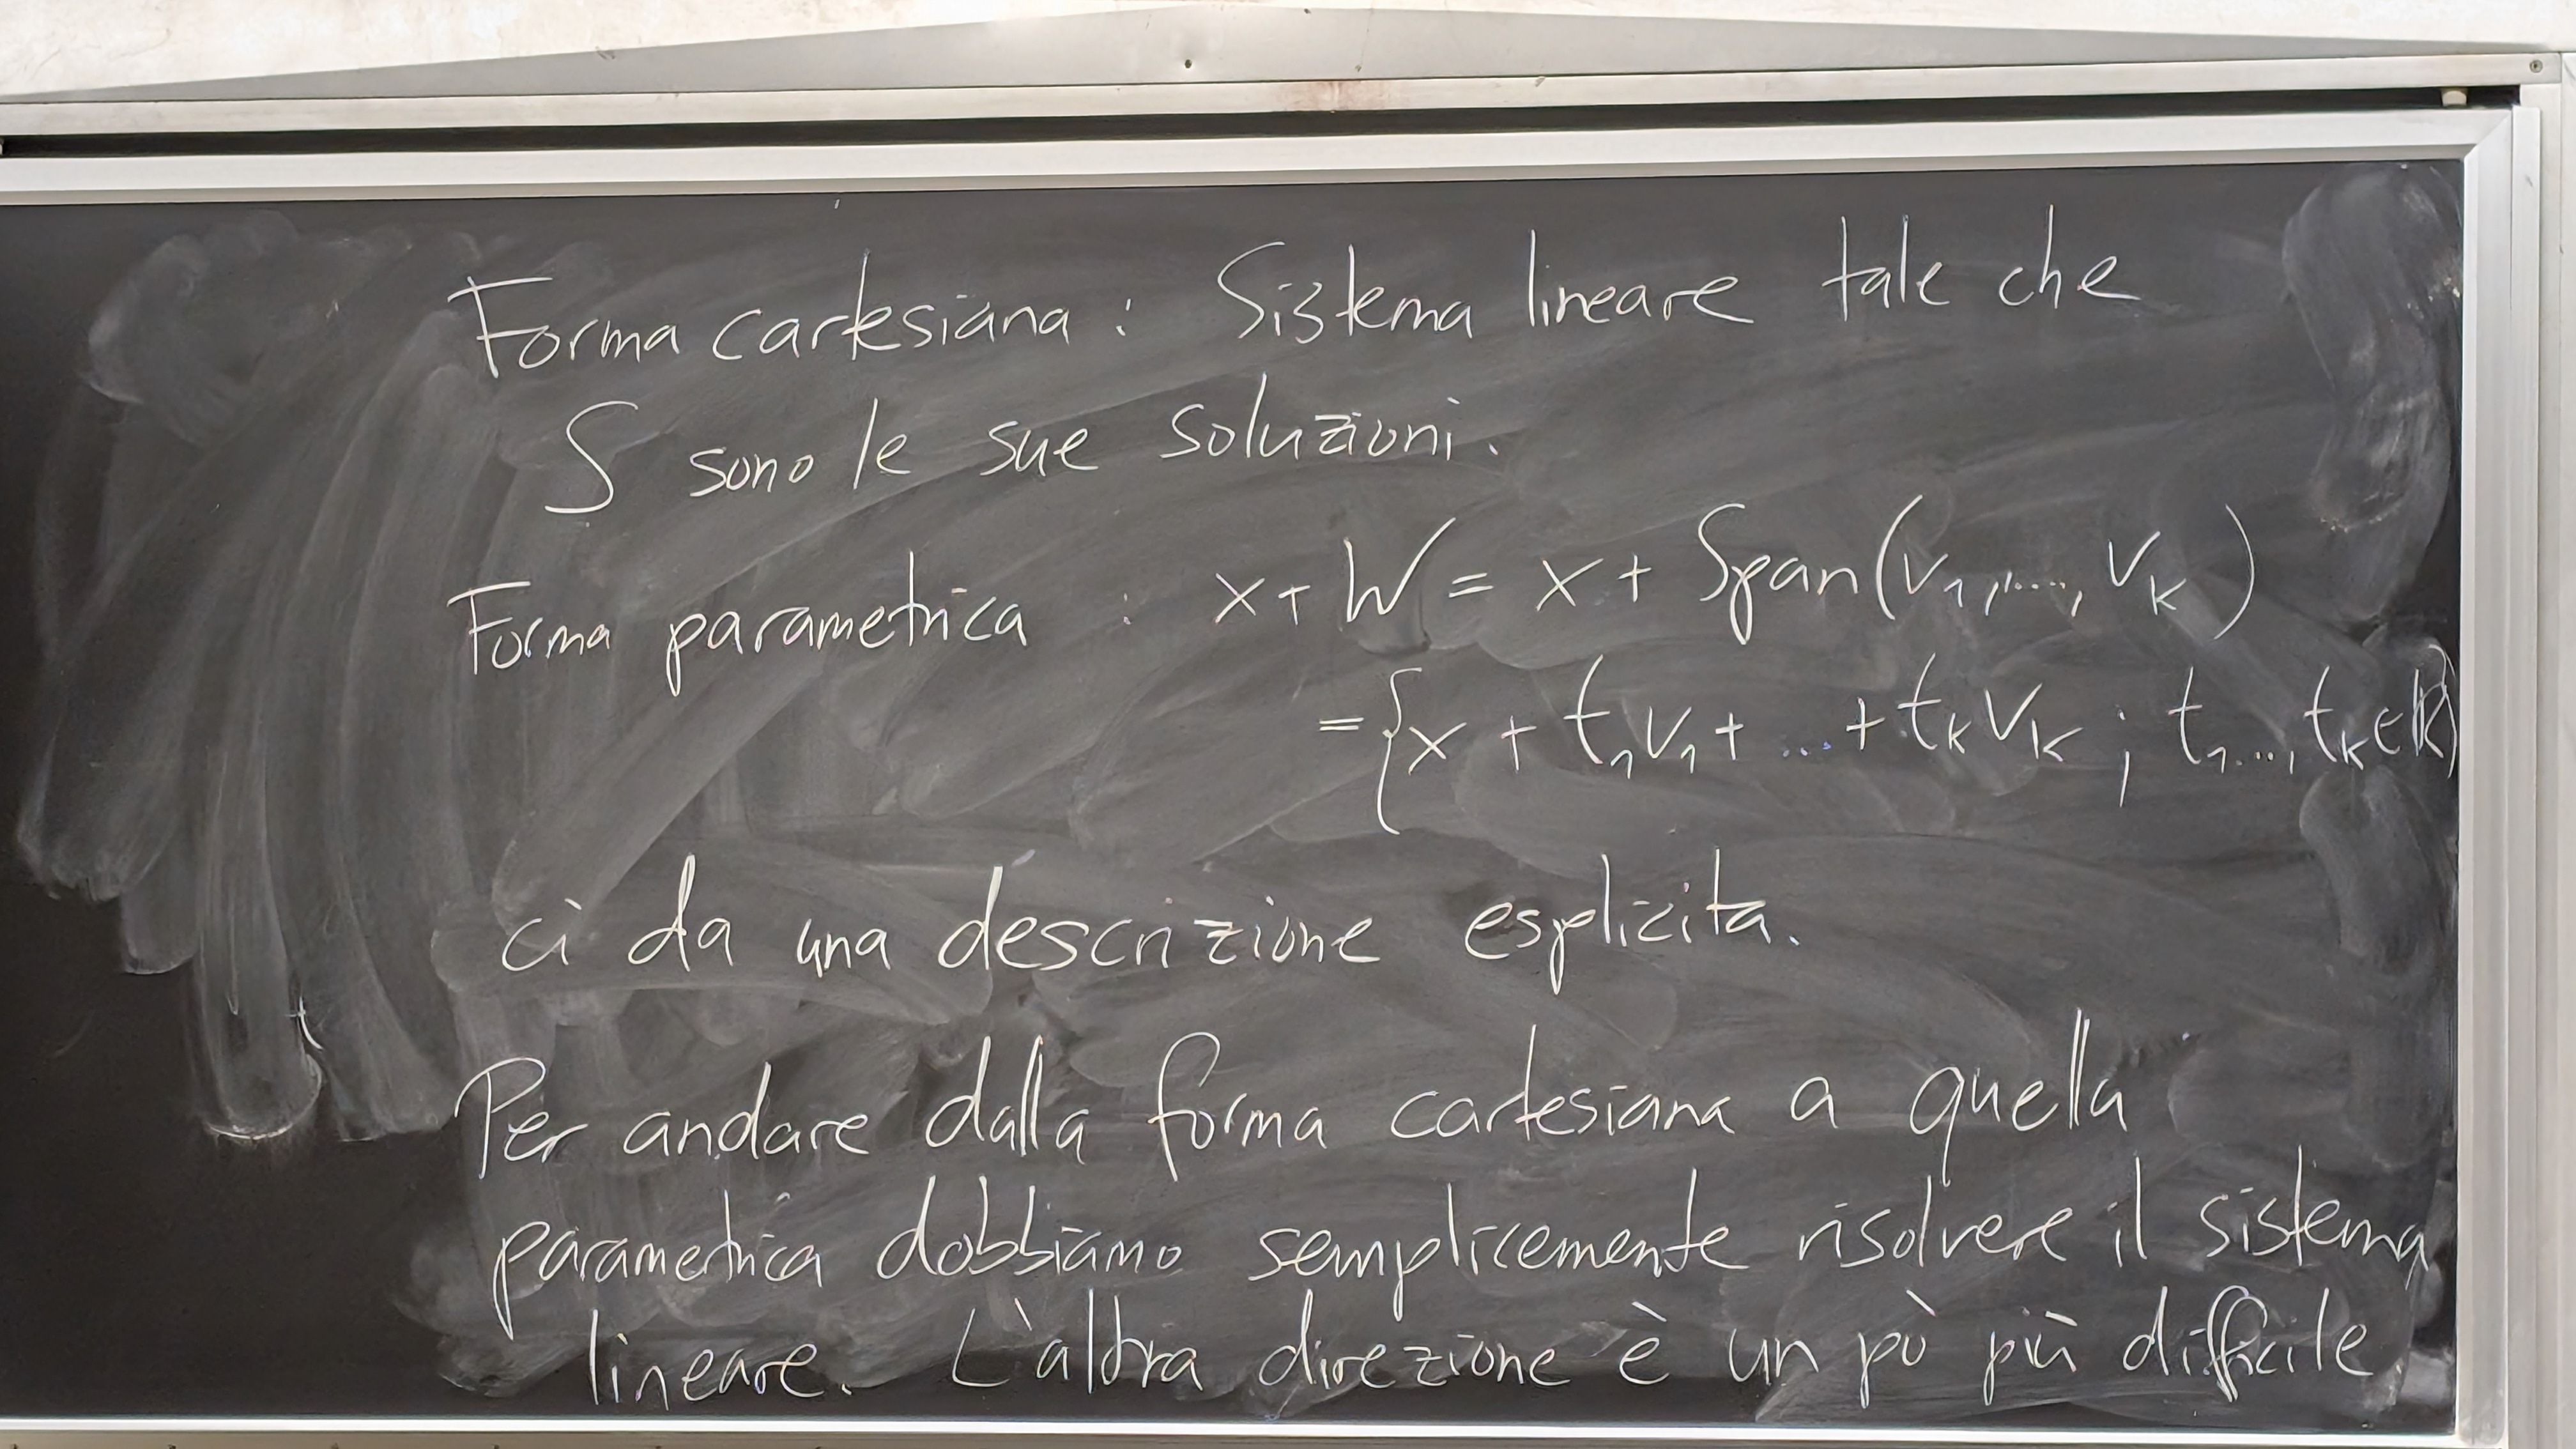 Forma cartesiana : Sistema lineare tale che
S sono le sue soluzioni.
Forma parametrica : x + W = x + Span(v₁,...., vₖ)
={x + t₁v₁ + ... + tₖvₖ ; t₁..., tₖ ∈ ℝ}
ci da una descrizione esplicita.
Per andare dalla forma cartesiana a quella
parametrica dobbiamo semplicemente risolvere il sistema
lineare. L'altra direzione è un pò più difficile